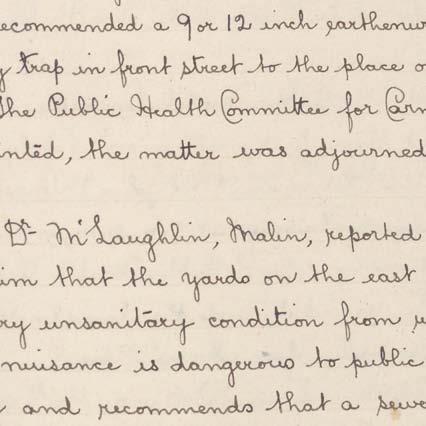 recommended a 9 or 12 inch earthenw
trap in front street to the place o
the Public Health Committee for Carn
inted, the matter was adjourned
Dr. McLaughlin, Malin, reported
im that the yards on the east
ry unsanitary condition from
nuisance is dangerous to public
and recommends that a sewe